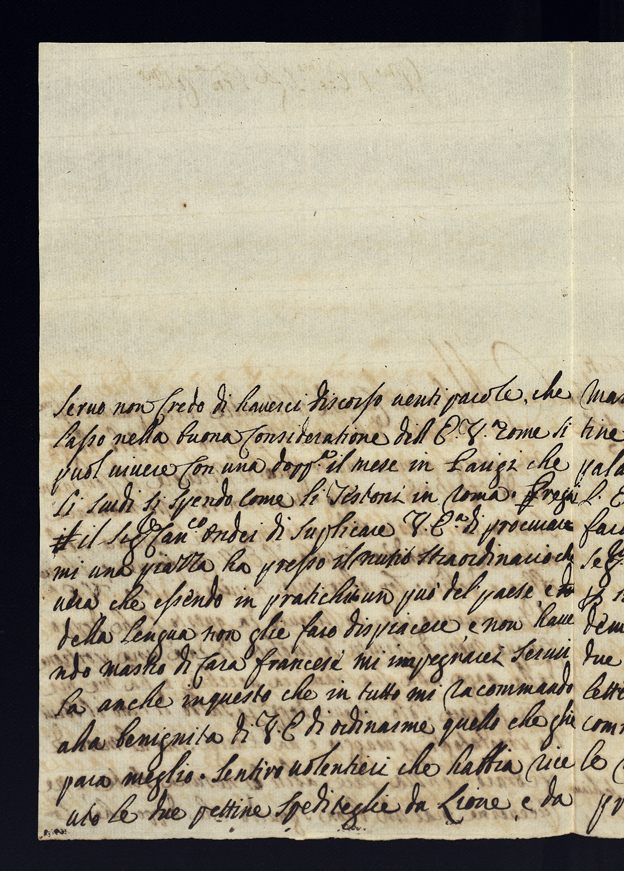 servo non credo di haverci discorso venti parole, che mas
lasso nella buona consideratione dell E. V. come si tine
puol vivere con una dopp.ª il mese in Parigi che pala
li scudi si spendo come li testoni in Roma. Prega
il Sig.r Fran.co di suplicare V. E.ª di procurar faci
mi una piazza ha presso il nuntio straordinario ch
vera che essendo in pratichi un puo del paese e
della lengua non glie faro dispiacere, e non have
ndo mastro di Casa francese mi impegnarei servi due
la anche in questo che in tutto mi racommando lette
alla benignita di V. E. di ordinarme quello che glie com
para meglio. Sentiro volentieri che habbia rice le
uto le due pettine spediteglie da Lione e da